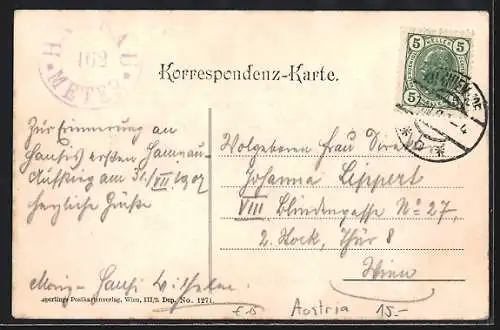 HARNAU
162
METER
Korrespondenz-Karte.
5 HELLER 5
5 5
Zur Erinnerung an
Hansis ersten
Aufstieg am 31/VII 1907
herzliche Grüße
Hansi Wilhelm
Wolgeboren Frau
Johanna Lippert
VIII Blindengasse No 27,
2. Stock, Thür 8
Wien
Sperlings Postkartenverlag, Wien, III/3. Dep. No. 1271.
Austria 15-